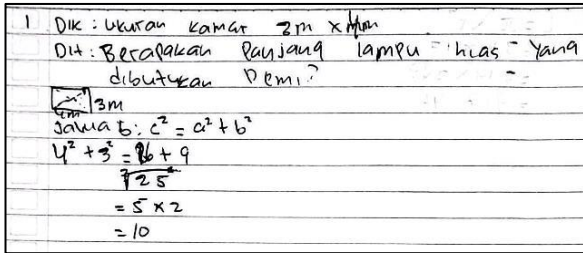 1 Dik : ukuran kamar 3m x 4m
Dit : Berapakah Panjang lampu hias yang
dibutuhkan Demi?
3m
4m
Jawab : c² = a² + b²
4² + 3² = 16 + 9
√25
= 5 x 2
= 10